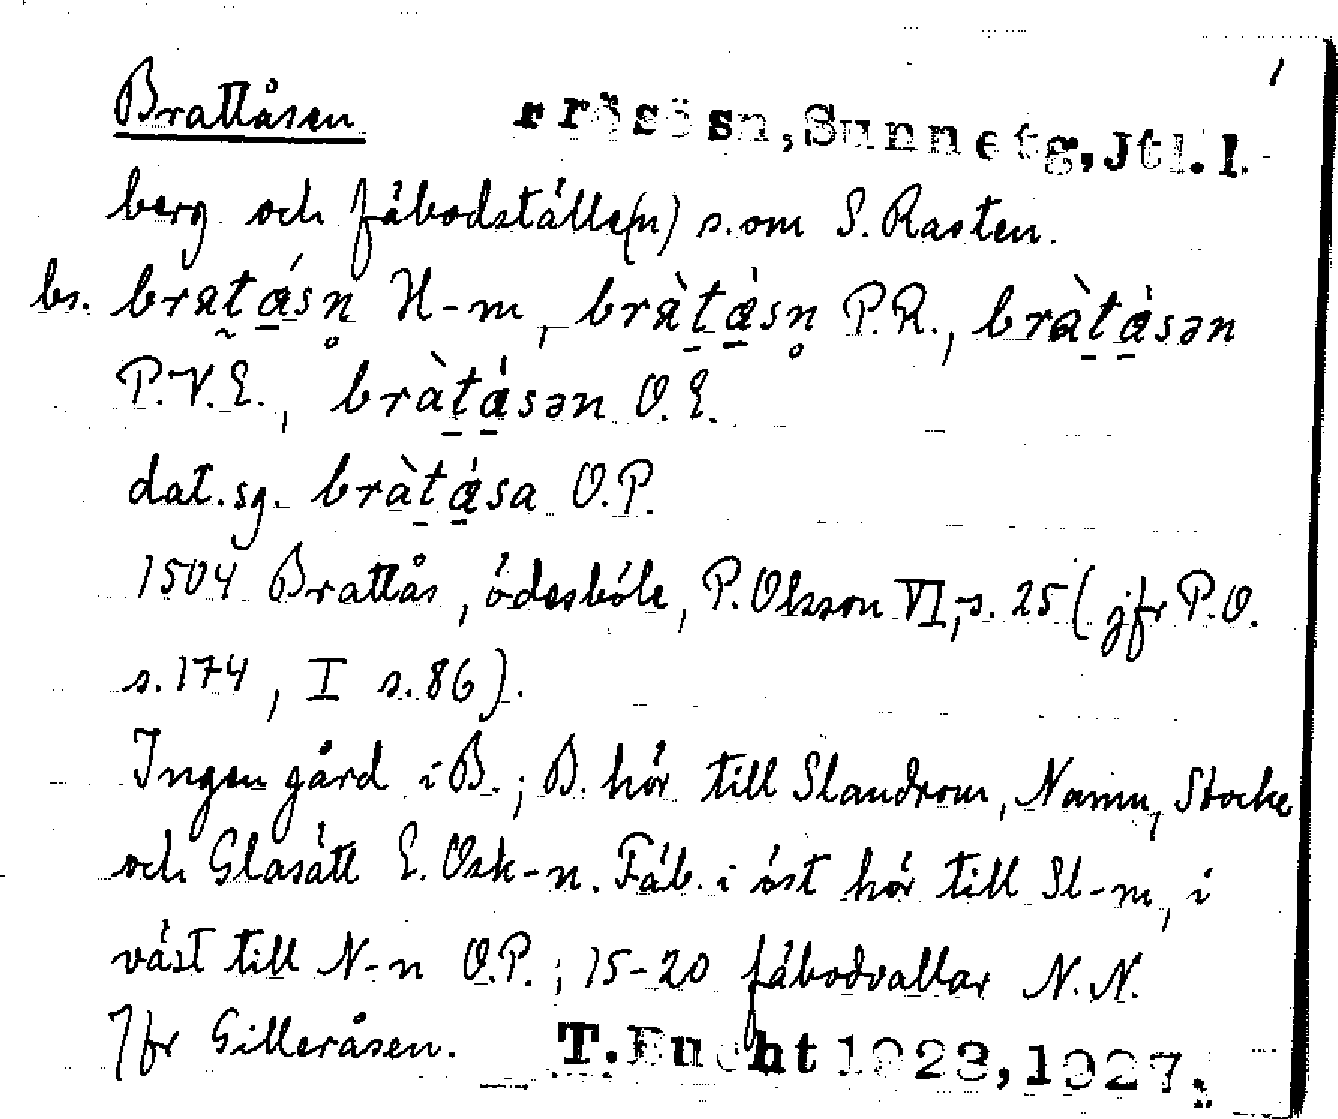 Brattåsen Frösösn, Sunnetg, Jtl. 1
berg och fäbodställe(n) s. om S. Rasten.
bs. bratásn H-m, bràtásn P.R., bràtásən
P.V.E., bràtásən O.E.
dat.sg. bràtása O.P.
1504 Brattås, ödesböle, P. Olsson VI, s. 25 (jfr P.O.
s. 174, I s. 86).
Ingen gård i B.; B. hör till Slandrom, Namn, Stocke
och Glasätt E. Osk-n. Fäb. i öst hör till Sl-m, i
väst till N-n O.P.; 15-20 fäbodvallar N.N.
Jfr Gilleråsen. T. Bucht 1923, 1927.